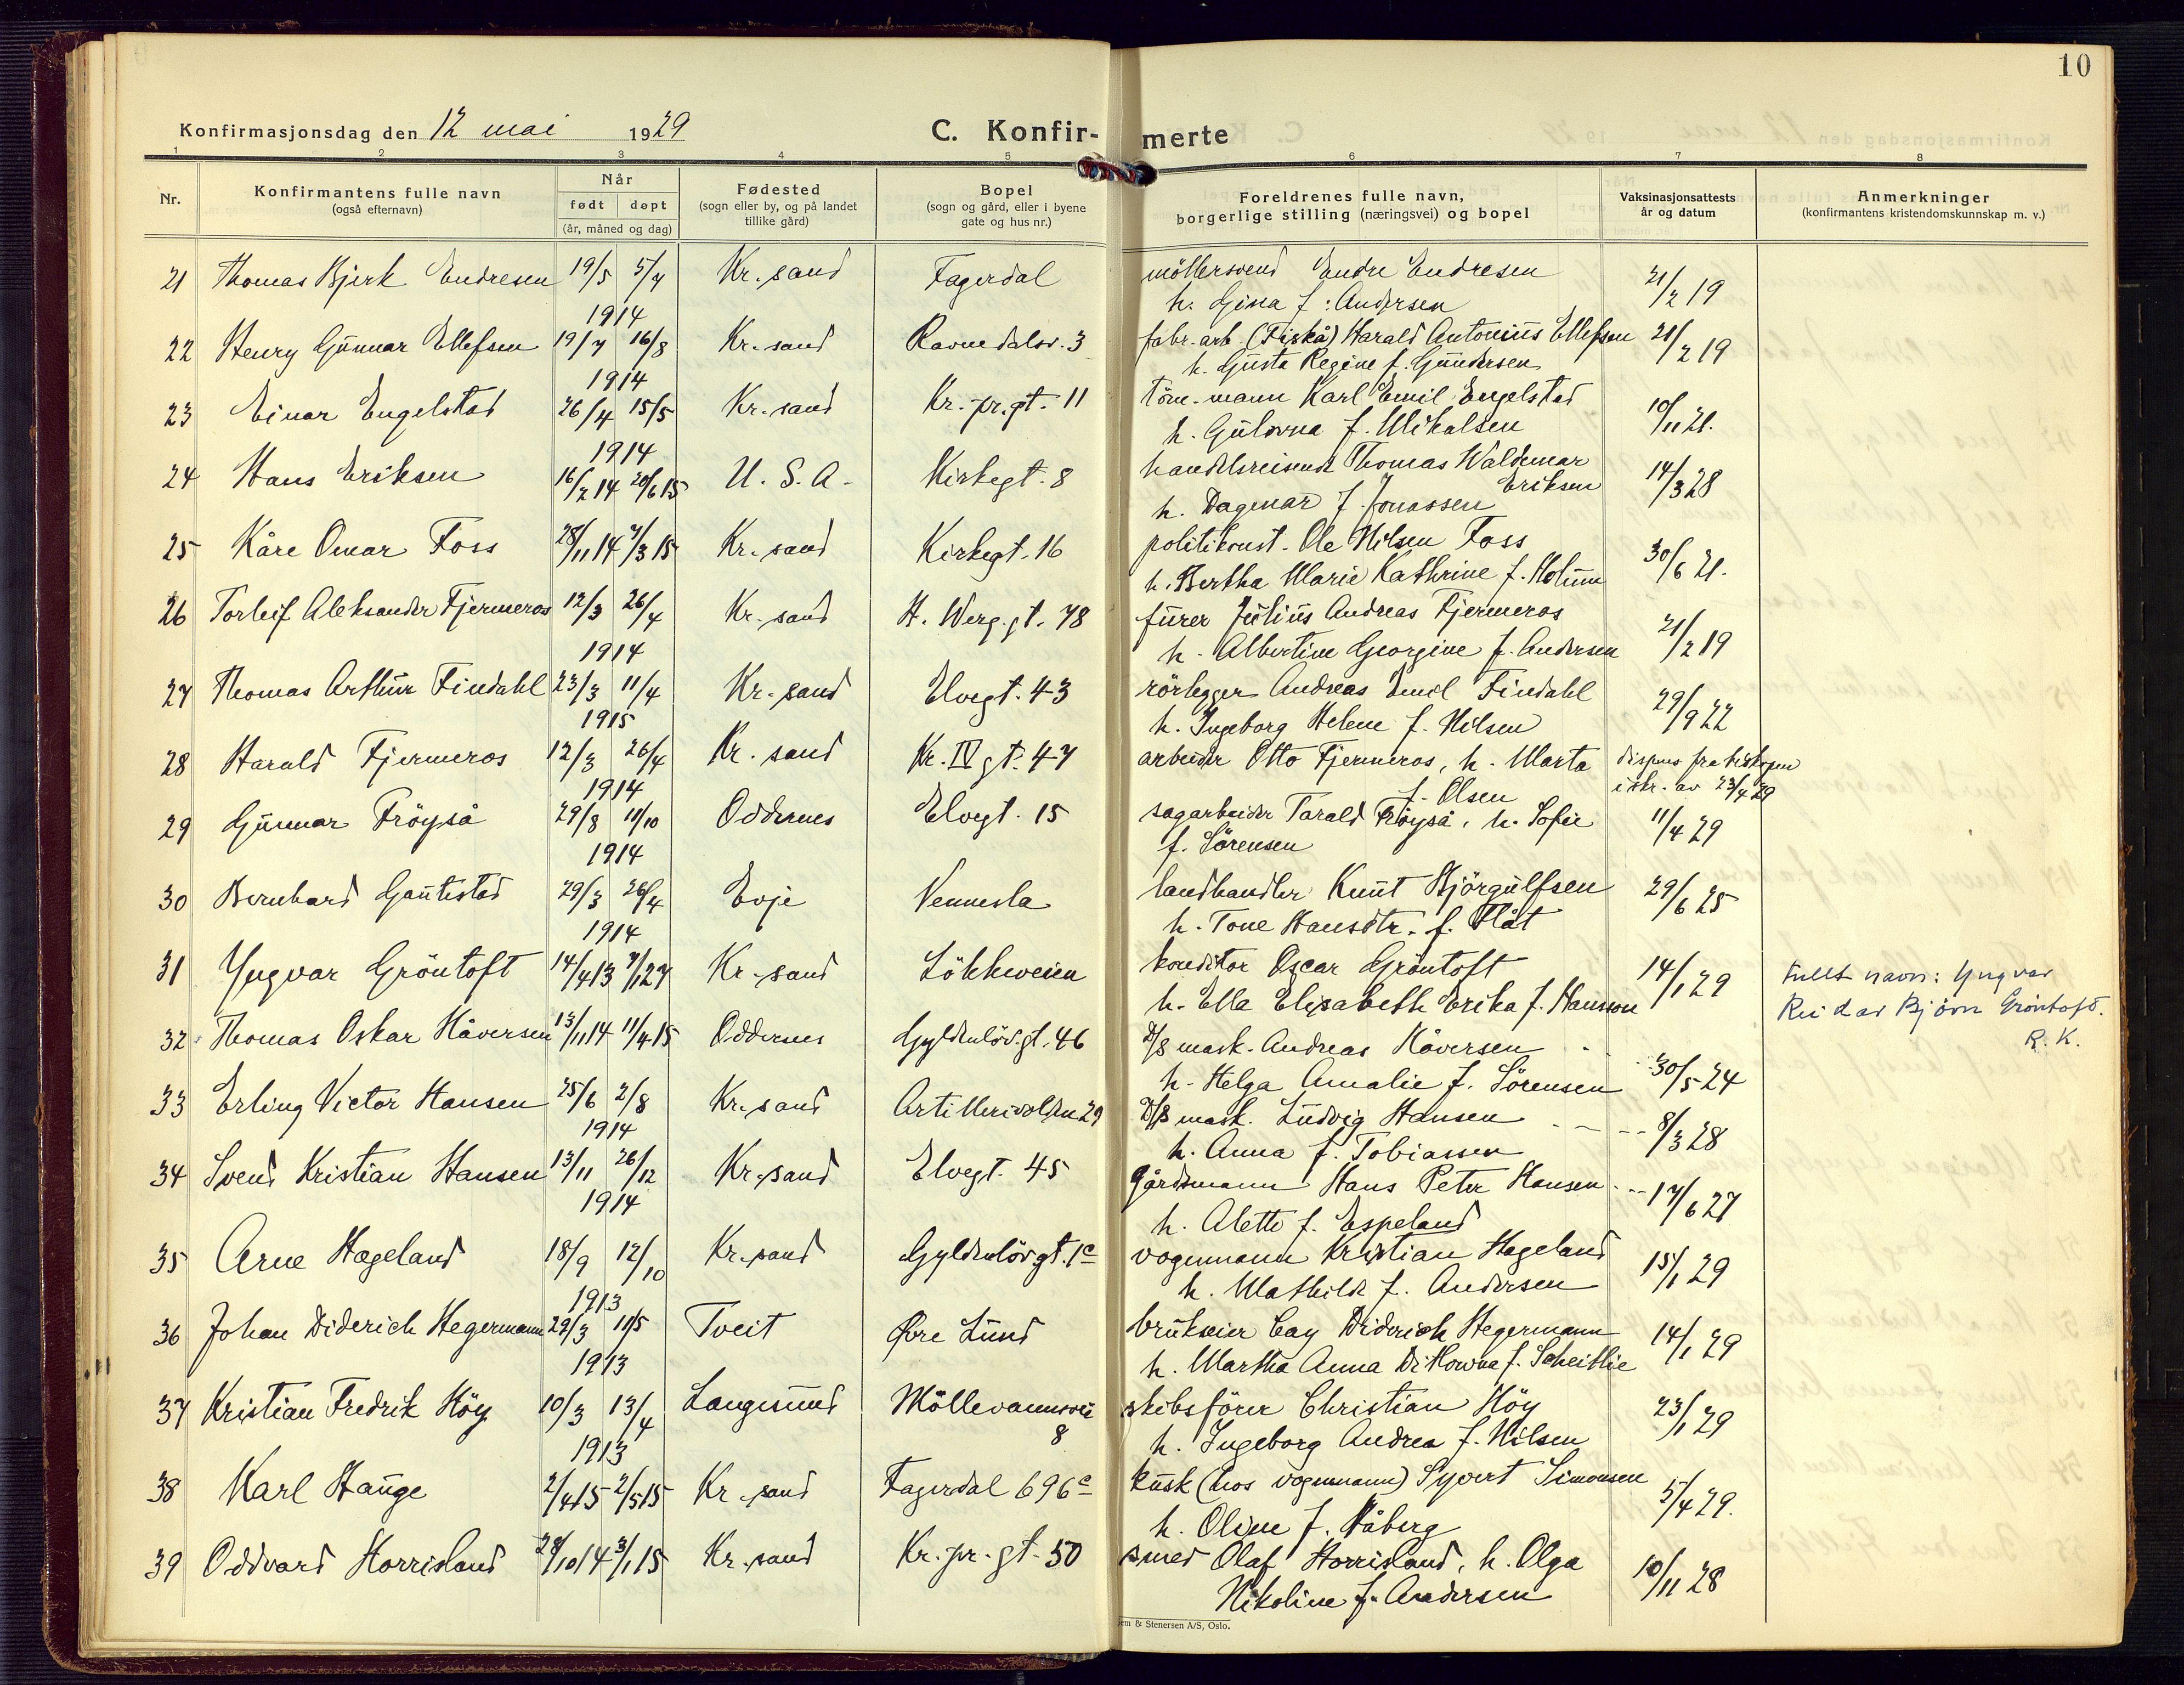 10
Konfirmasjonsdag den 12 mai 1929
C. Konfir-merte
1 2 3 4 5 6 7 8
Nr.
Konfirmantens fulle navn
(også efternavn)
Når
født døpt
(år, måned og dag)
Fødested
(sogn eller by, og på landet
tillike gård)
Bopel
(sogn og gård, eller i byene
gate og hus nr.)
Foreldrenes fulle navn,
borgerlige stilling (næringsvei) og bopel
Vaksinasjonsattests
år og datum
Anmerkninger
(konfirmantens kristendomskunnskap m. v.)
21 Thomas Bjerk Endresen 19/5 5/7 Kr.sand Fagerdal möllersvend Endre Endresen 21/2 19
1914 h. Gina f: Andersen
22 Henry Gunnar Ellefsen 19/7 16/8 Kr.sand Ravnedalsv. 3 fabr. arb. (Fiskå) Harald Antonius Ellefsen 21/2 19
1914 h. Gusta Regine f. Gundersen
23 Einar Engelstad 26/4 15/5 Kr.sand Kr.pr.gt. 11 töm. mann Karl Emil Engelstad 10/11 21.
1914 h. Gulovna f. Mikalsen
24 Hans Eriksen 16/2 14 20/6 15 U. S. A. Kirkegt. 8 handelsreisende Thomas Waldemar Eriksen 14/3 28
h. Dagmar f. Jonassen
25 Kåre Omar Foss 28/11 14 7/3 15 Kr.sand Kirkegt. 16 politikonst. Ole Nilsen Foss 30/6 21.
h. Bertha Marie Kathrine f. Holum
26 Torleif Aleksander Fjermeros 12/3 26/4 Kr.sand H. Werg.gt. 78 furer Julius Andreas Fjermeros 21/2 19
1914 h. Albertine Georgine f. Andersen
27 Thomas Arthur Findahl 23/3 11/4 Kr.sand Elvegt. 43 rörlegger Andreas Emil Findahl 29/9 22
1915 h. Ingeborg Helene f. Nilsen
28 Harald Fjermeros 12/3 26/4 Kr.sand Kr. IV gt. 47 arbeider Otto Fjermeros, h. Marta dispens fra biskopen
1914 f. Olsen i skr. av 23/4 29
29 Gunnar Fröyså 29/8 11/10 Oddernes Elvegt. 15 sagarbeider Tarald Fröyså, h. Sofie 11/4 29
1914 f. Sörensen
30 Bernhard Gautestad 29/3 26/4 Evje Vennesla landhandler Knut Hjörgulfsen 29/6 25
1914 h. Tone Hansdtr. f. Flåt
31 Yngvar Gröntoft 14/4 13 7/1 27 Kr.sand Lökkeveien konditor Oscar Gröntoft 14/1 29 Fullt navn: Yngvar
h. Ella Elisabeth Erika f. Hansson Reidar Bjørn Grøntoft.
R. K.
32 Thomas Oskar Håversen 13/11 14 11/4 15 Oddernes Gyldenlöv.gt. 46 D/S mask. Andreas Håversen 30/5 24
h. Helga Amalie f. Sörensen
33 Erling Victor Hansen 25/6 2/8 Kr.sand Artillerivolden 29 D/S mask. Ludvig Hansen 8/3 28
1914 h. Anna f. Tobiassen
34 Svend Kristian Hansen 13/11 26/12 Kr.sand Elvegt. 45 gårdsmann Hans Peter Hansen 17/6 27
1914 h. Alette f. Espeland
35 Arne Hægeland 18/9 12/10 Kr.sand Gyldenlöv.gt. 1c vognmann Kristian Hægeland 15/1 29
1913 h. Mathilde f. Andersen
36 Johan Diderich Hegermann 29/3 11/5 Tveit Øvre Lund brukseier Cay Diderich Hegermann 14/1 29
1913 h. Martha Anna f. Scheitlie
37 Kristian Fredrik Höy 10/3 13/4 Langesund Möllevannsvei 8 skibsförer Christian Höy 23/1 29
1913 h. Ingeborg Andrea f. Nilsen
38 Karl Hauge 2/4 15 2/5 15 Kr.sand Fagerdal 696c kusk (hos vognmann) Syvert Simonsen 5/4 29.
h. Oline f. Håberg
39 Oddvard Horrisland 28/10 14 3/1 15 Kr.sand Kr.pr.gt. 50 smed Olaf Horrisland, h. Olga 10/11 28
Nikoline f. Andersen
& Stenersen A/S, Oslo.